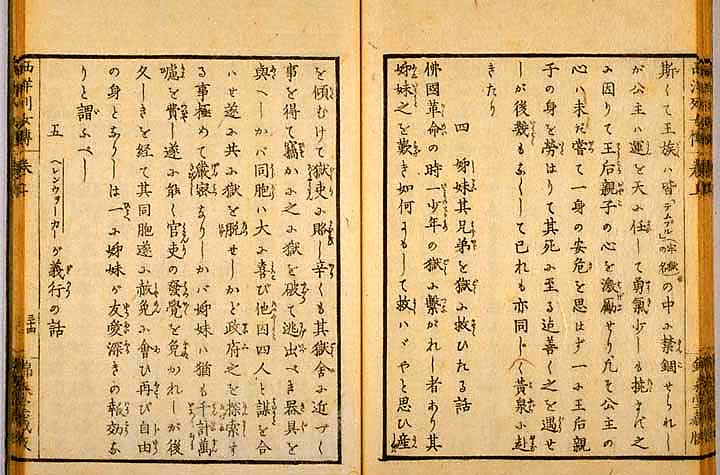 斯くて王族ハ皆「テムプル」（牢獄の名）の中に禁錮せられし
が公主ハ運を天に任して勇氣少しも挫けず之
に因りて王后親子の心を激勵せり凡そ公主の
心ハ未だ嘗て一身の安危を思はず一に王后親
子の身を勞はりて其死に至る迄善く之を遇せ
しが後幾もなくして已れも亦同じく黄泉に赴
きたり
四 姉妹其兄弟を獄に救ひたる話
佛國革命の時一少年の獄に繋がれし者あり其
姉妹之を歎き如何にもして救ハヾやと思ひ産
を傾むけて獄吏に賂し辛くも其獄舎に近づく
事を得て竊かに之に獄を破て逃出べき器具を
與へしかバ同胞ハ大に喜び他囚四人と謀を合
ハせ遂に共に獄を脱せしかど政府之を探索す
る事極めて嚴密なりしかバ姉妹ハ猶も千計萬
慮を費し遂に能く官吏の發覺を免かれしが後
久しきを経て其同胞遂に赦免に會ひ再び自由
の身となりしは一に姉妹が友愛深きの報効な
りと謂ふべし
五 ヘレンウォーカーが義行の話
西洋列女傳 卷五
三十四